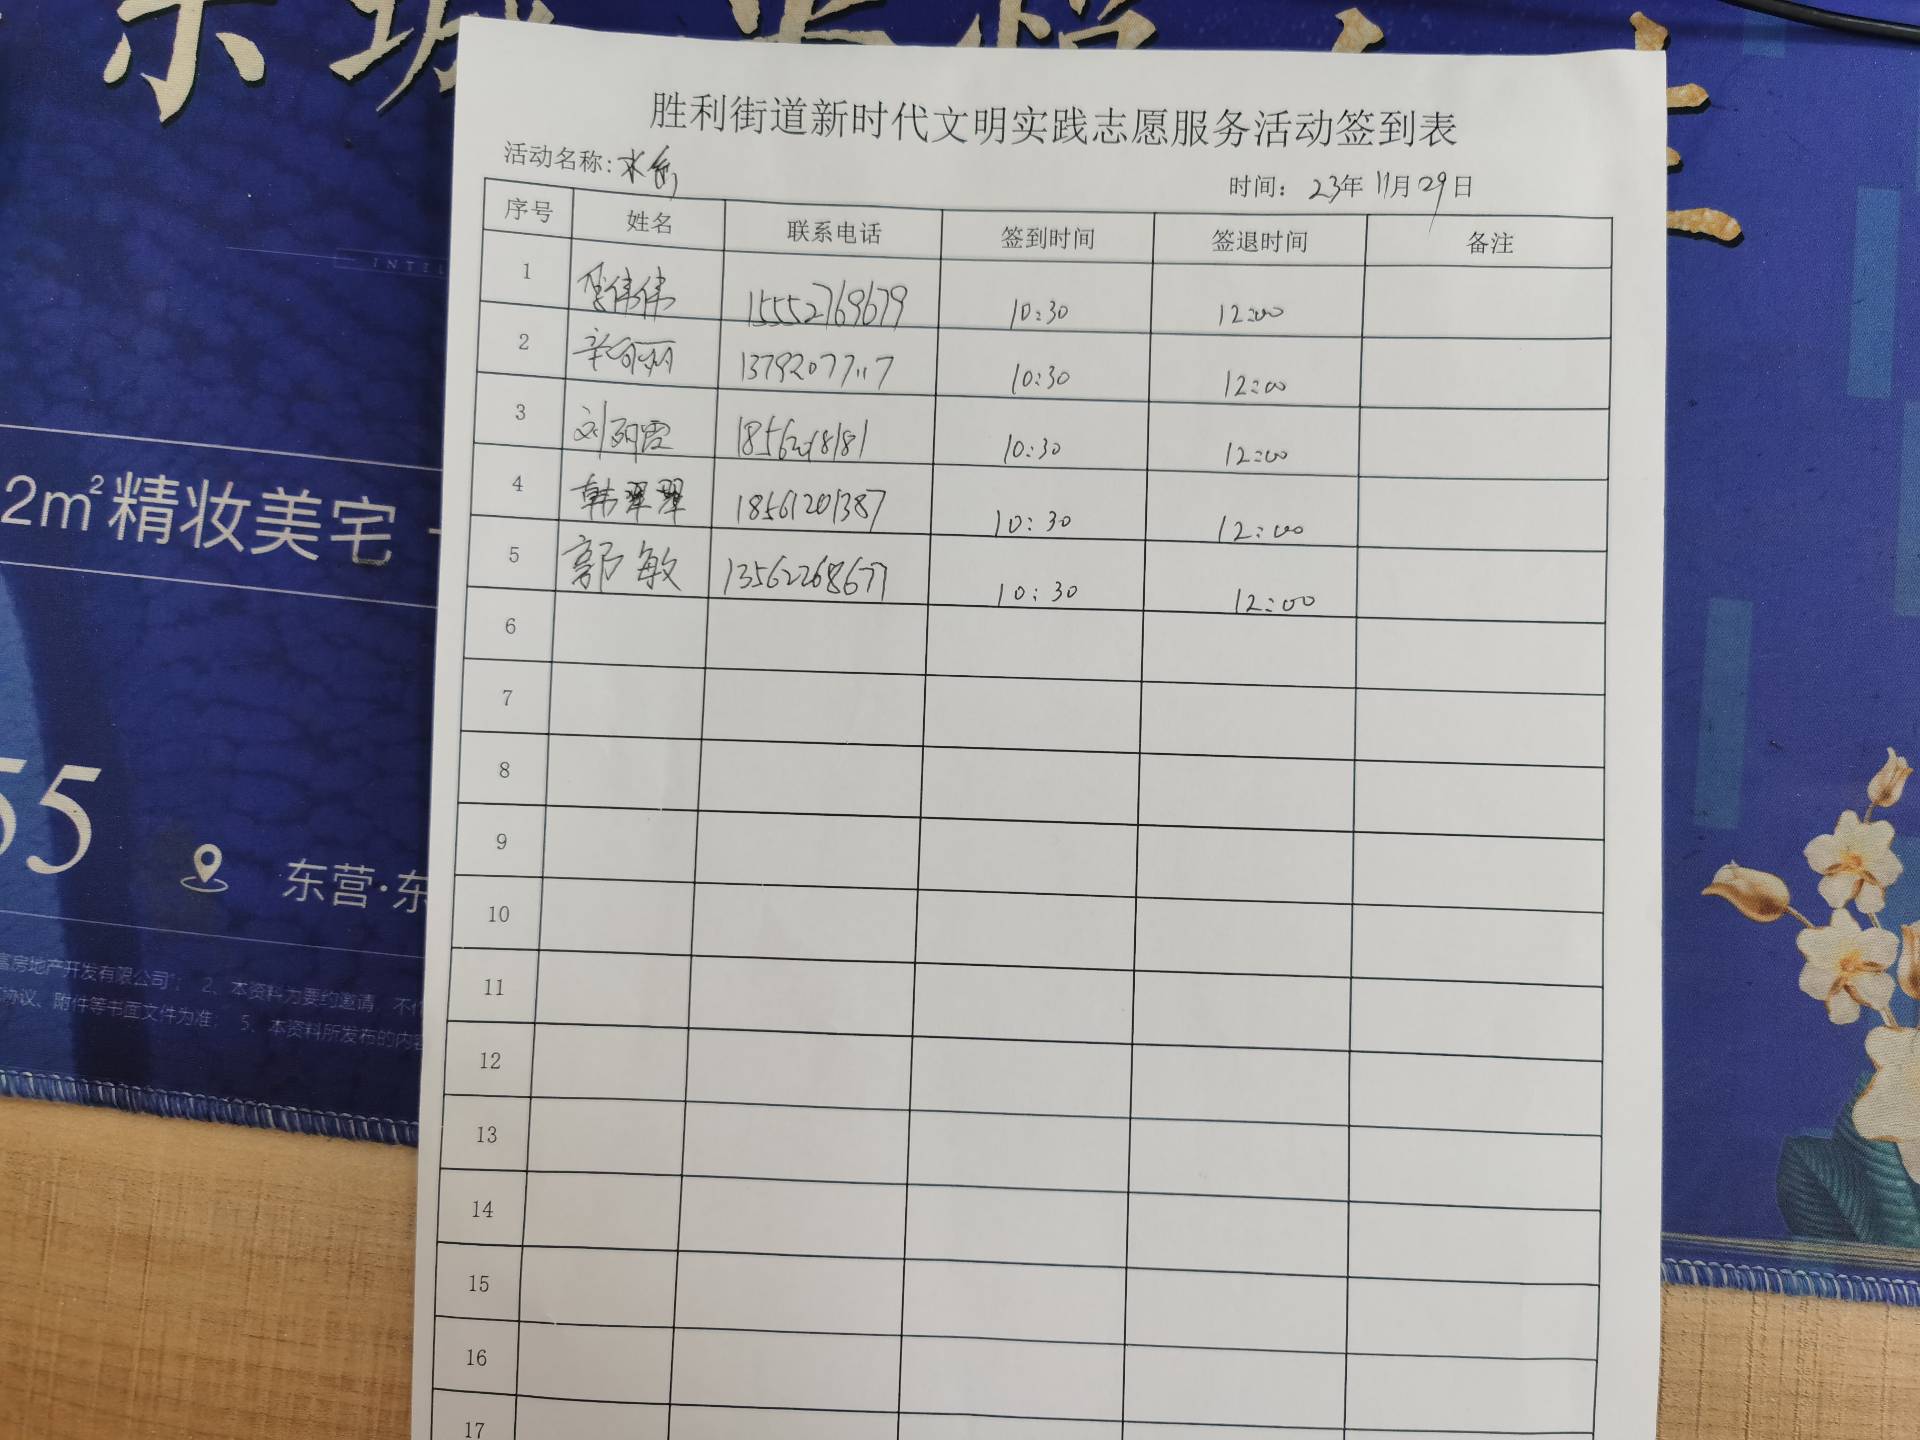 胜利街道新时代文明实践志愿服务活动签到表
活动名称:
时间: 23年 11月 29日
序号 姓名 联系电话 签到时间 签退时间 备注
1 伟伟 15552769679 10:30 12:00
2 辛 10:30 12:00
3 刘 霞 10:30 12:00
4 韩翠翠 18561201387 10:30 12:00
5 郭敏 13562268677 10:30 12:00
6
7
8
9
10
11
12
13
14
15
16
17
2m²精妆美宅
55
东营·东
富房地产开发有限公司"; 2、本资料为要约邀请,不作
协议、附件等书面文件为准; 5、本资料所发布的内容
INTEL